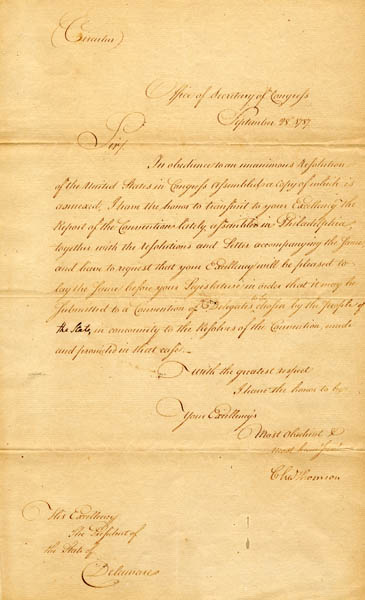 (Circular)
Office of Secretary of Congress
September 28. 1787.
Sir,
In obedience to an unanimous Resolution
of the United States in Congress Assembled, a Copy of which is
annexed, I have the honor to transmit to your Excellency the
Report of the Convention lately assembled in Philadelphia,
together with the resolutions and Letter accompanying the same
and have to request that your Excellency will be pleased to
lay the same before your Legislature in order that it may be
submitted to a Convention of Delegates chosen by the people of
the State, in conformity to the Resolves of the Convention, made
and provided in that case.—
with the greatest respect
I have the honor to be
Your Excellency's
Most obedient &
most humble
Chas Thomson
His Excellency
The President of
the State of
Delaware